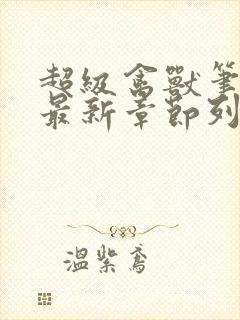 超級禽獸筆
最新章節列
溫紫鳶